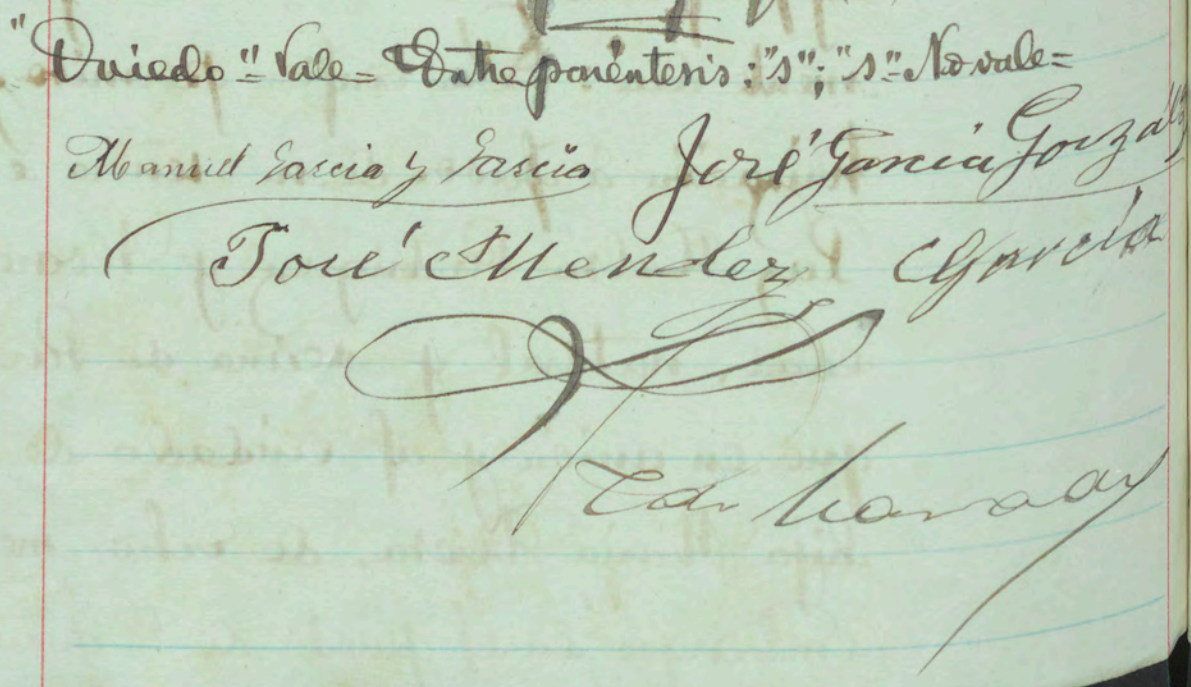 "Oviedo"=Vale=Entre paréntesis:"s";"s"=No vale=
Manuel Garcia y Garcia José Garcia Gonzalez
José Mendez Garcia